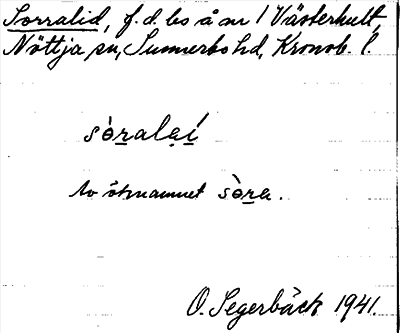 Sorralid, f. d. bs å nr 1 Västerhult,
Nöttja sn, Sunnerbo hd, Kronob. l.
sòralạí
Av öknamnet sòra.
O. Segerbäck 1941.